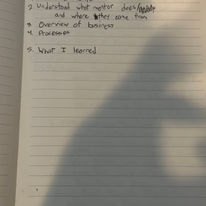 2. Understand what mentor does/
and where they came from
3. Overview of business
4. Processes
5. What I learned